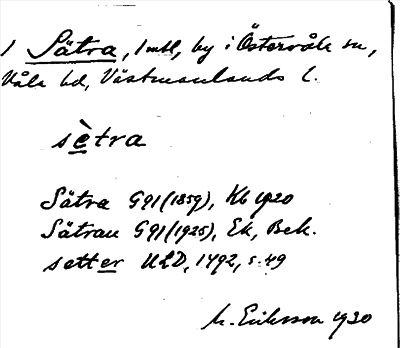 1 Sätra, 1 mtl, by i Östervåla sn,
Våla hd, Västmanlands l.
sètra
Sätra G91(1859), Kb 1920
Sätran G91(1925), Ek, Bek.
setter ULD, 1492, s. 49
M. Eriksson 1930